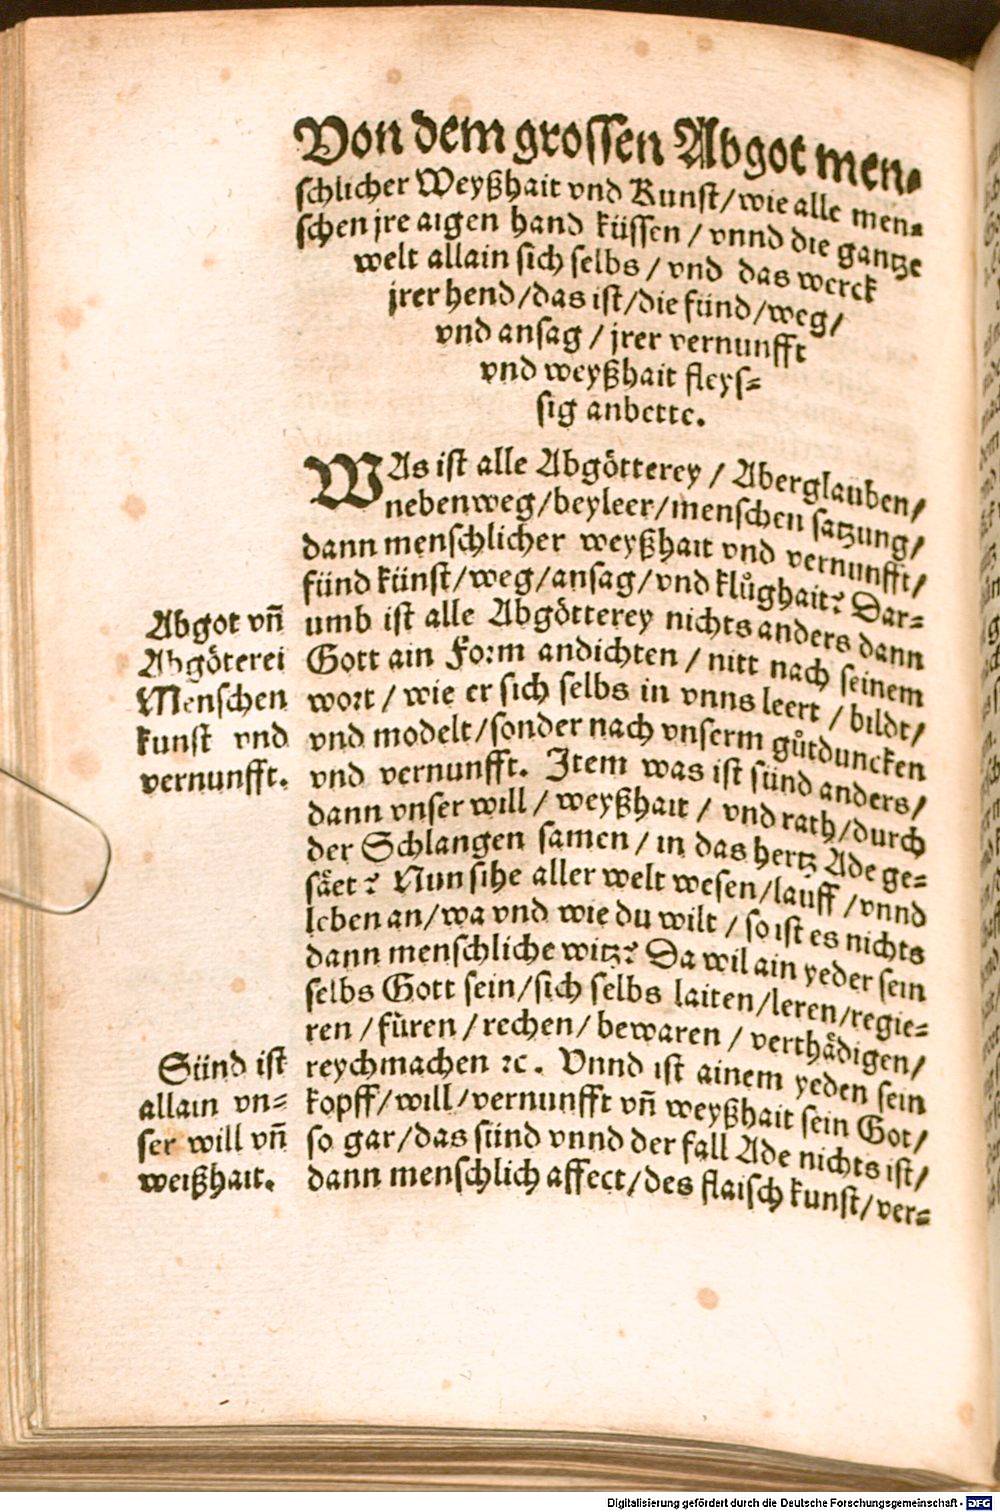 Von dem grossen Abgot men⸗
schlicher Weyßhait vnd Kunst/ wie alle men⸗
schen jre aigen hand küssen / vnnd die gantze
welt allain sich selbs / vnd das werck
jrer hend/das ist/die fünd/weg/
vnd ansag / jrer vernunfft
vnd weyßhait fleys⸗
sig anbette.
WAs ist alle Abgötterey / Aberglauben/
nebenweg/beyleer/menschen satzung/
dann menschlicher weyßhait vnd vernunfft/
fünd künst/weg/ansag/vnd klůghait? Dar⸗
umb ist alle Abgötterey nichts anders dann
Gott ain Form andichten / nitt nach seinem
wort / wie er sich selbs in vnns leert / bildt/
vnd modelt/sonder nach vnserm gůtduncken
vnd vernunfft. Item was ist sünd anders/
dann vnser will / weyßhait / vnd rath/durch
der Schlangen samen / in das hertz Ade ge⸗
säet? Nun sihe aller welt wesen/lauff /vnnd
leben an/wa vnd wie du wilt / so ist es nichts
dann menschliche witz? Da wil ain yeder sein
selbs Gott sein/sich selbs laiten/leren/regie⸗
ren / füren / rechen/ bewaren / verthädigen/
reychmachen ꝛc. Vnnd ist ainem yeden sein
kopff/will/vernunfft vñ weyßhait sein Got/
so gar/das sünd vnnd der fall Ade nichts ist/
dann menschlich affect/des flaisch kunst/ver⸗
Abgot vñ
Abgöterei
Menschen
kunst vnd
vernunfft.
Sünd ist
allain vn⸗
ser will vñ
weißhait.
Digitalisierung gefördert durch die Deutsche Forschungsgemeinschaft - DFG